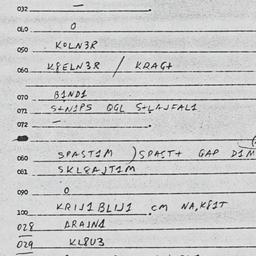 032 —
040 0
050 KOLN3R
060 K8ELN3R / KRAG+
070 B1ND1
071 S+N1PS OGL S+LAJFAL1
072 —
060 SPAST1M ) SPAST+ GAP D1M
061 SKL8AJT1M
090 0
100 KR1J1 BL1J1 CM NA,K81T
028 ARAJN1
029 KL8U3